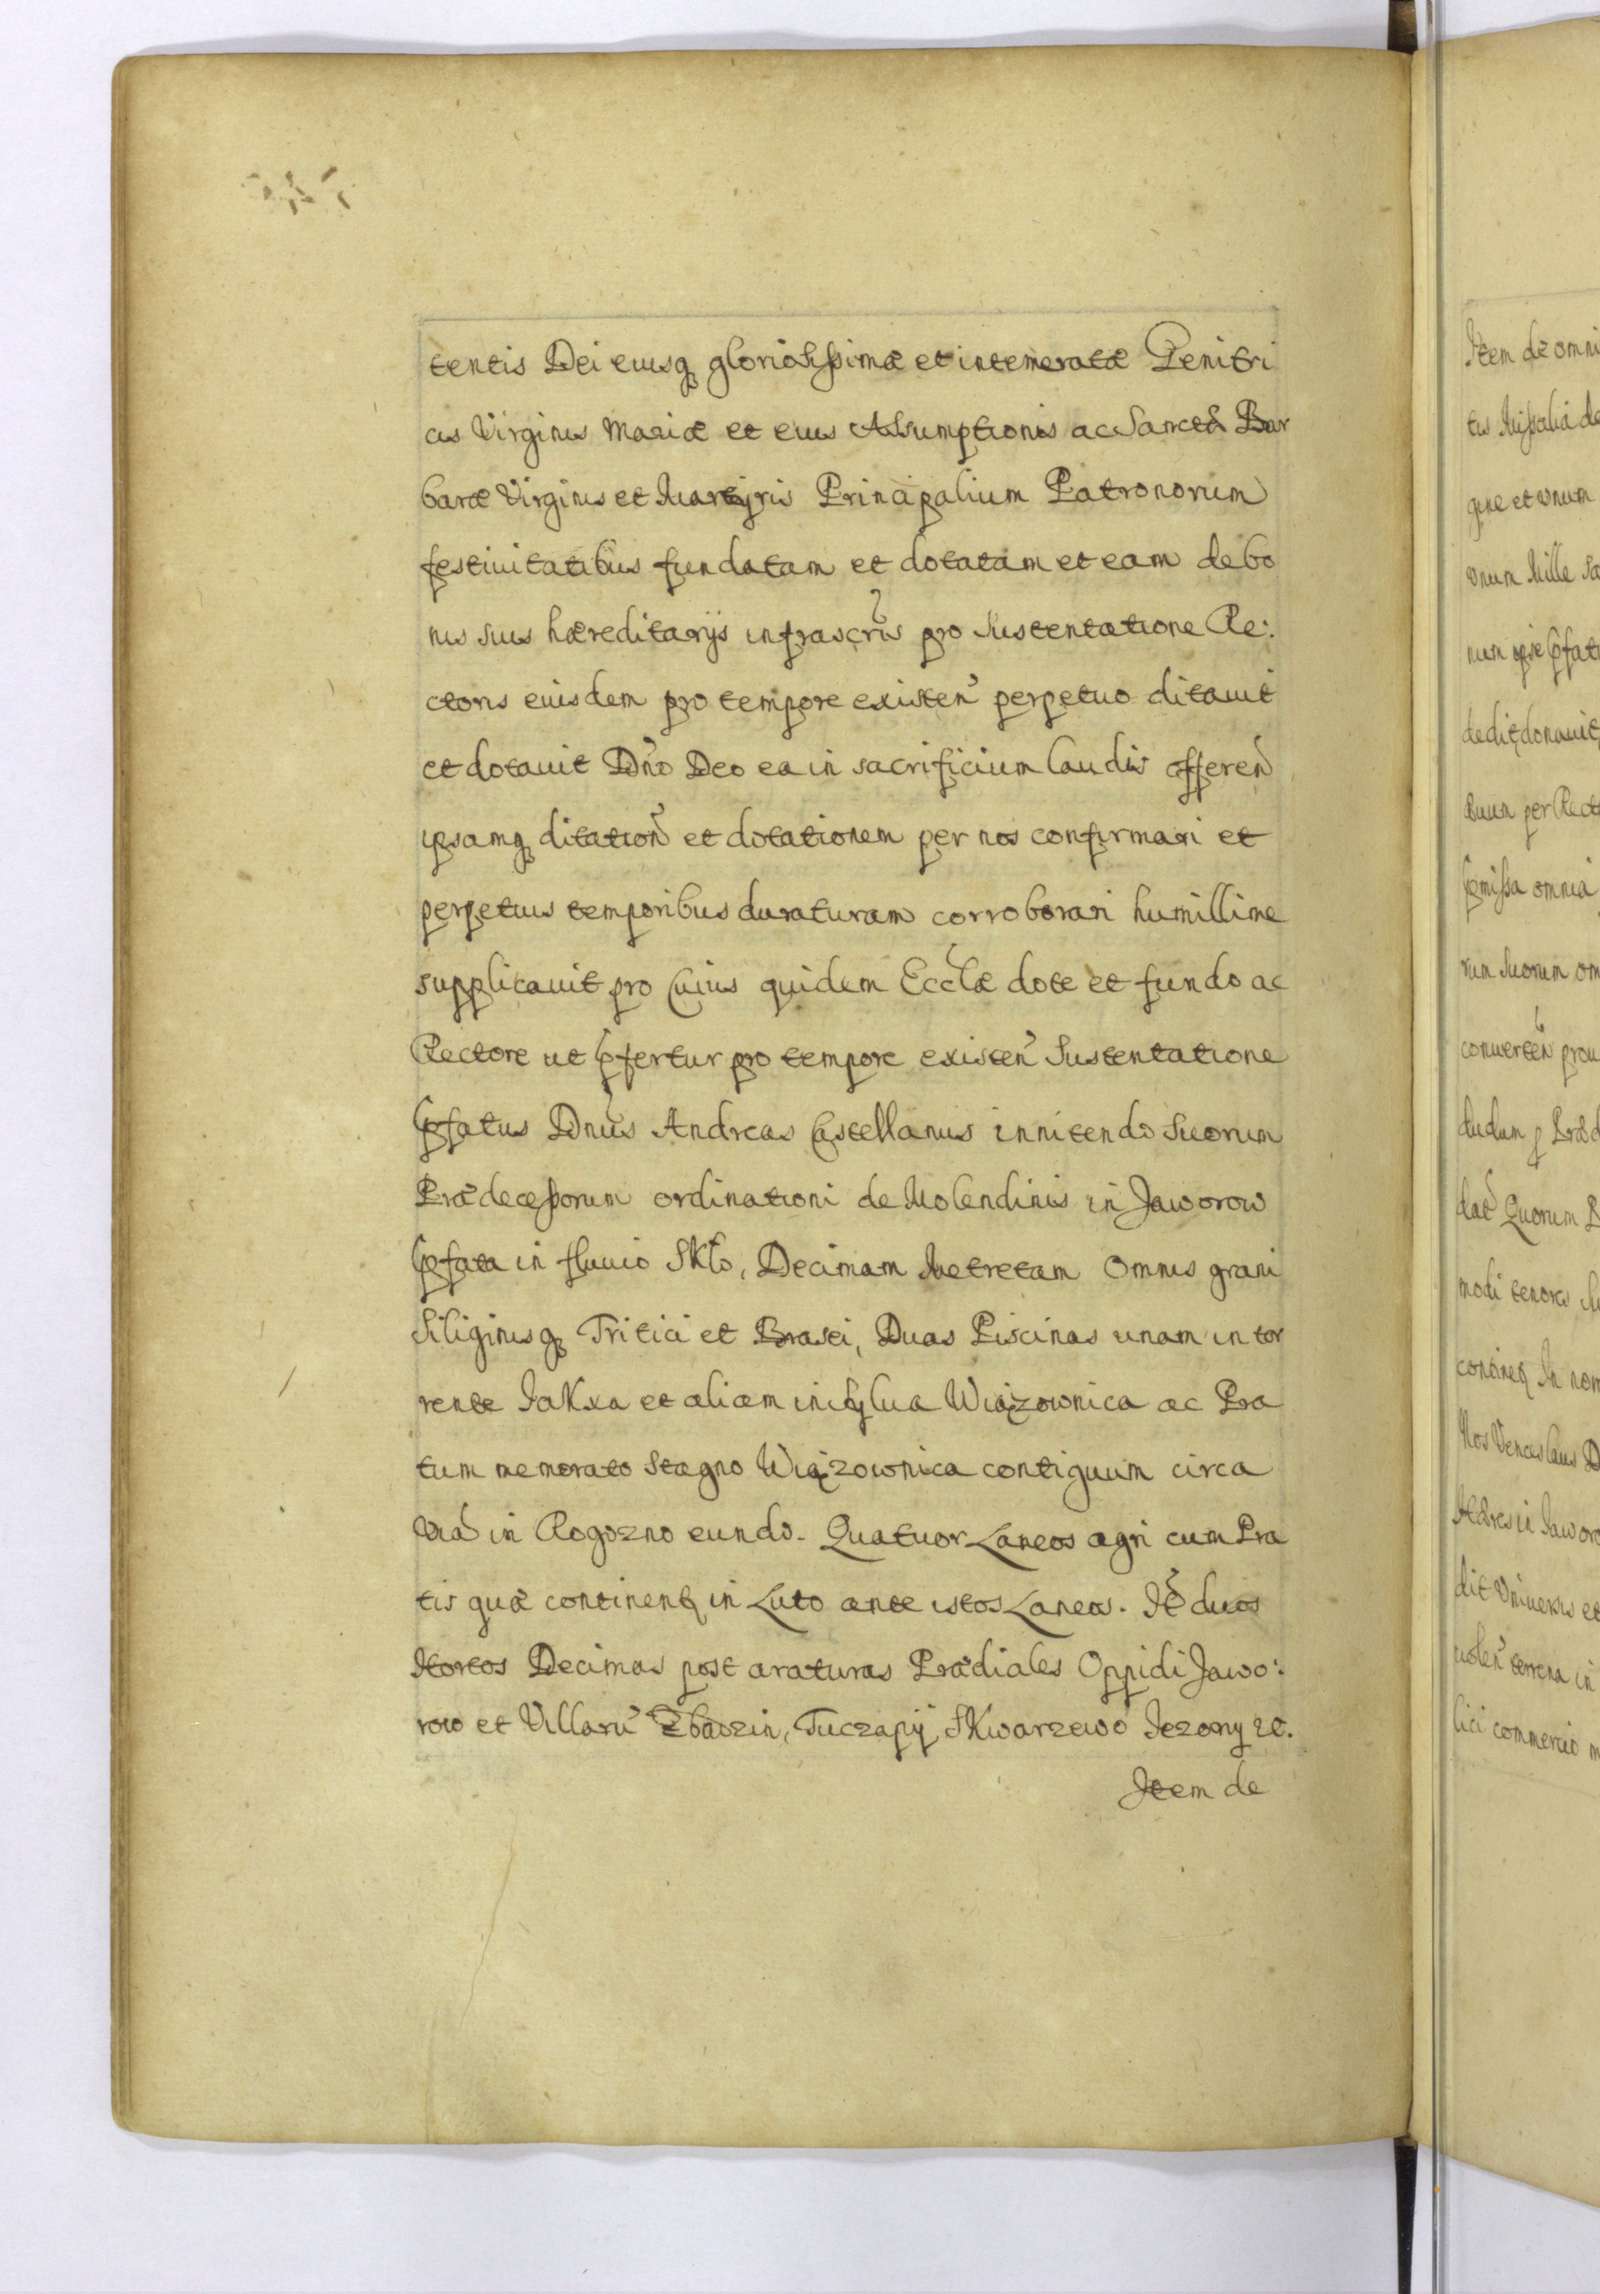 tentis Dei eiusq gloriosissimæ et intemeratæ Genitri
cis Virginis Mariæ et eius Assumptionis ac Sanctæ Bar
baræ Virginis et Martyris Principalium Patronorum
festiuitatibus fundatam et dotatam et eam de bo
nis suis hæreditarijs infrascris pro sustentatione Re:
ctoris eiusdem pro tempore existen perpetuo ditauit
et dotauit Dno Deo ea in sacrificium laudis offeren
ipsamq ditation et dotationem per nos confirmari et
perpetuis temporibus duraturam corroborari humillime
supplicauit pro cuius quidem Eccłæ dote et fundo ac
Rectore ut pfertur pro tempore existen sustentatione
pfatus Dnus Andreas Castellanus innitendo suorum
Prædecessorum ordinationi de Molendinis in Jaworow
pfata in fluuio Skło, Decimam Metretam omnis grani
Siliginisq Tritici et Brasei, Duas Piscinas unam in tor
rente Jakxa et aliam in sylua Wiązownica ac Pra
tum memorato stagno Wiązownica contiguum circa
via in Rogozno eundo. Quatuor Laneos agri cum Pra
tis quæ continentq in Luto ante istos Laneos. Ite duos
Hortos Decimas post araturas Prædiales Oppidi Jawo:
row et Villaru Zbadzin, Tuczapij, Skwarzewo Jezony etc.
Item de
Item de omni
tus Missalia de
gine et unum
unum Mille
dedit donauit
per Rect
omnia
rum suorum om
conuerten prou
dudum
dat Quorum
modi tenores
In nom
Nos Venceslaus D
Hæres in Jaworo
dit Uniuersis et
uolen terrena in
lici commercio